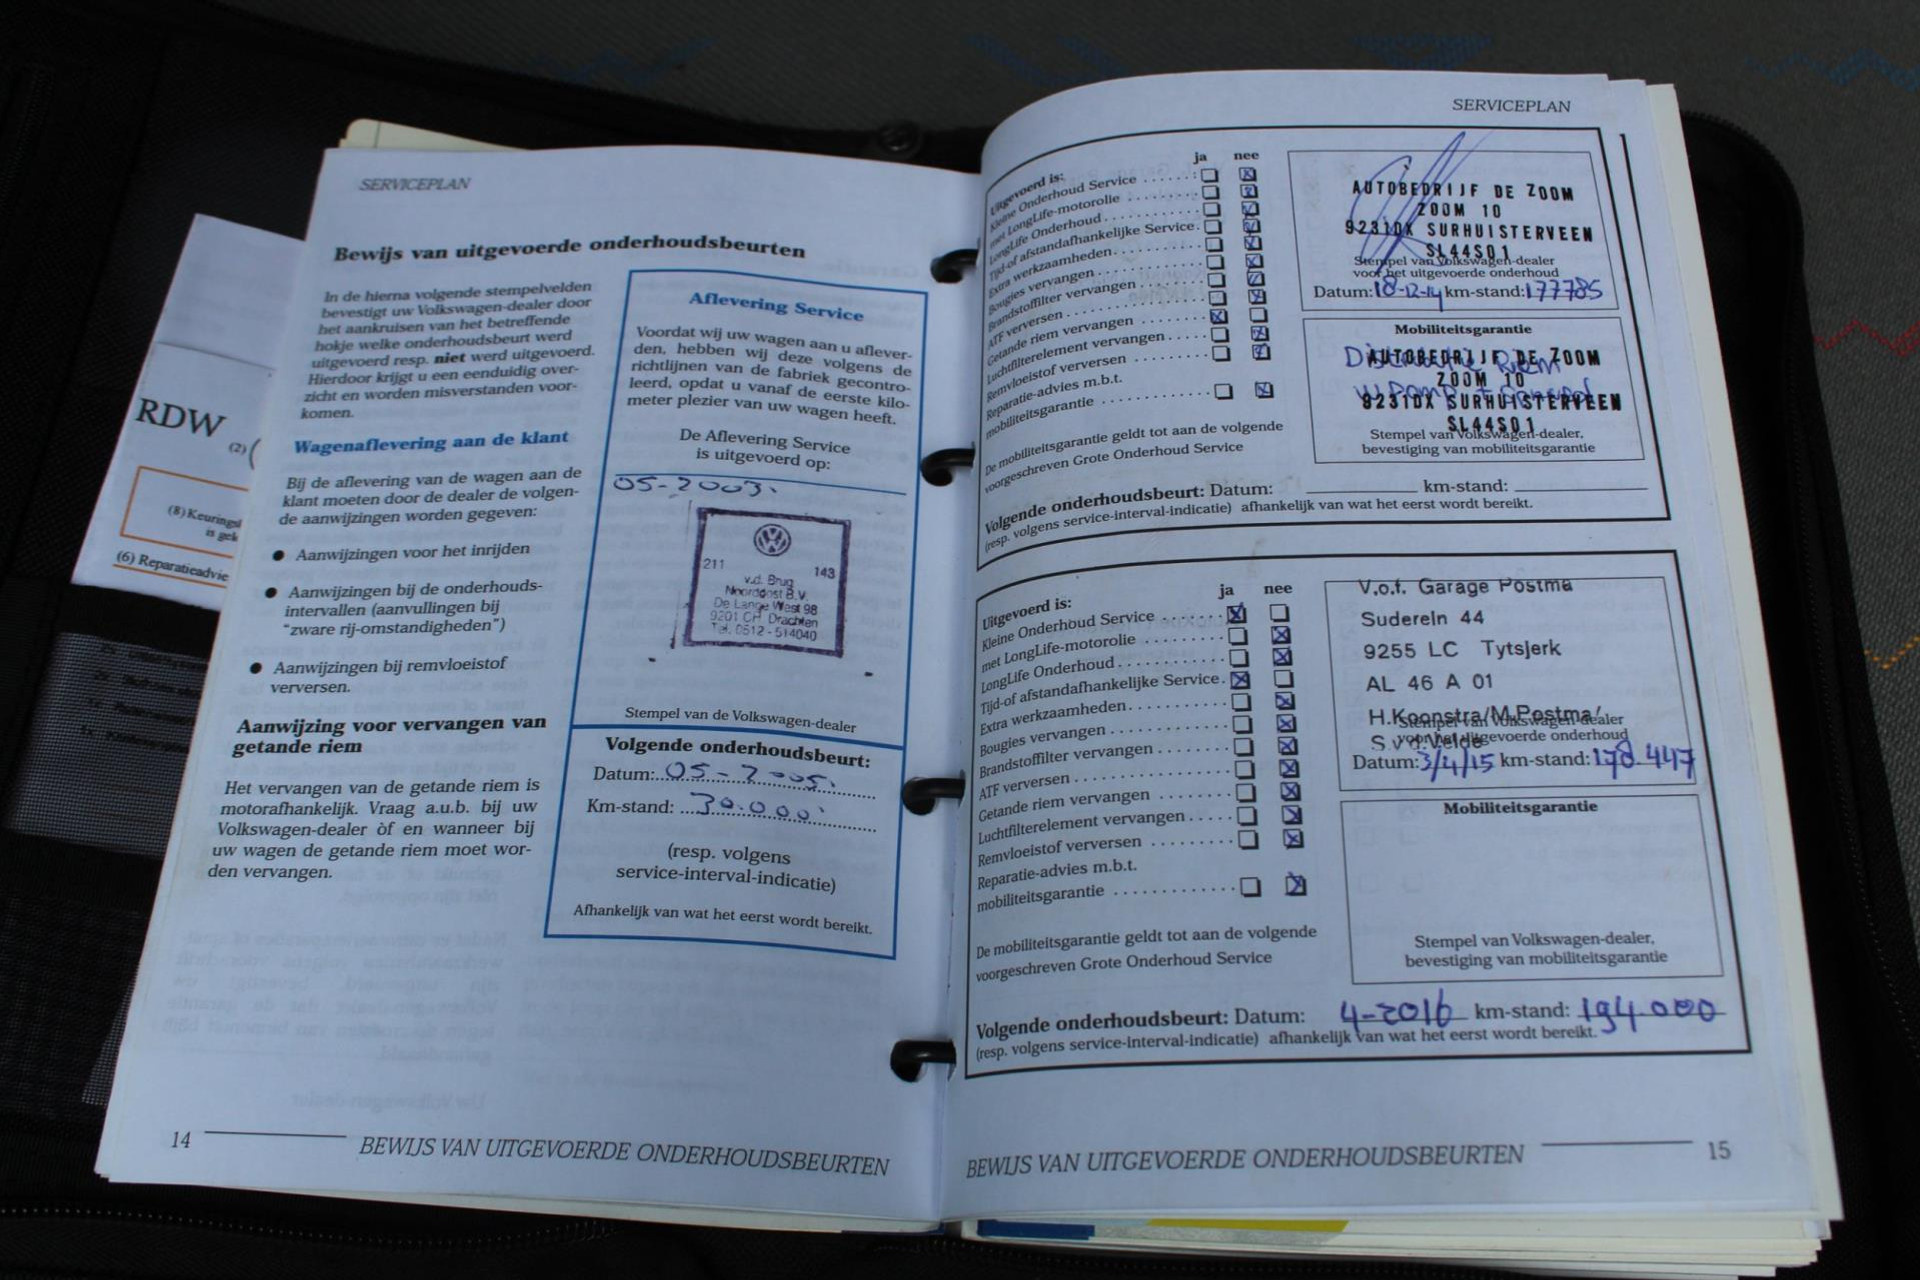 RDW
(2)
(8) Keurings
is gek
(6) Reparatieadvie
SERVICEPLAN
Bewijs van uitgevoerde onderhoudsbeurten
In de hierna volgende stempelvelden
bevestigt uw Volkswagen-dealer door
het aankruisen van het betreffende
hokje welke onderhoudsbeurt werd
uitgevoerd resp. niet werd uitgevoerd.
Hierdoor krijgt u een eenduidig over-
zicht en worden misverstanden voor-
komen.
Wagenaflevering aan de klant
Bij de aflevering van de wagen aan de
klant moeten door de dealer de volgen-
de aanwijzingen worden gegeven:
● Aanwijzingen voor het inrijden
● Aanwijzingen bij de onderhouds-
intervallen (aanvullingen bij
"zware rij-omstandigheden")
● Aanwijzingen bij remvloeistof
verversen.
Aanwijzing voor vervangen van
getande riem
Het vervangen van de getande riem is
motorafhankelijk. Vraag a.u.b. bij uw
Volkswagen-dealer òf en wanneer bij
uw wagen de getande riem moet wor-
den vervangen.
Aflevering Service
Voordat wij uw wagen aan u aflever-
den, hebben wij deze volgens de
richtlijnen van de fabriek gecontro-
leerd, opdat u vanaf de eerste kilo-
meter plezier van uw wagen heeft.
De Aflevering Service
is uitgevoerd op:
05-2003.
211 143
v.d. Brug
Noordoost B.V.
De Lange West 98
9201 CH Drachten
Tel. 0512 - 514040
Stempel van de Volkswagen-dealer
Volgende onderhoudsbeurt:
Datum: 05-2005.
Km-stand: 30.000
(resp. volgens
service-interval-indicatie)
Afhankelijk van wat het eerst wordt bereikt.
14 BEWIJS VAN UITGEVOERDE ONDERHOUDSBEURTEN
SERVICEPLAN
ja nee
Uitgevoerd is:
Kleine Onderhoud Service
met LongLife-motorolie
LongLife Onderhoud
Tijd-of afstandafhankelijke Service
Extra werkzaamheden
Bougies vervangen
Brandstoffilter vervangen
ATF verversen
Getande riem vervangen
Luchtfilterelement vervangen
Remvloeistof verversen
Reparatie-advies m.b.t.
mobiliteitsgarantie
De mobiliteitsgarantie geldt tot aan de volgende
voorgeschreven Grote Onderhoud Service
AUTOBEDRIJF DE ZOOM
ZOOM 10
9231DX SURHUISTERVEEN
SL44S01
Stempel van Volkswagen-dealer
voor het uitgevoerde onderhoud
Datum: 18-12-14 km-stand: 177785
Mobiliteitsgarantie
AUTOBEDRIJF DE ZOOM
Riem
ZOOM 10
9231DX SURHUISTERVEEN
SL44S01
Stempel van Volkswagen-dealer,
bevestiging van mobiliteitsgarantie
Volgende onderhoudsbeurt: Datum: km-stand:
(resp. volgens service-interval-indicatie) afhankelijk van wat het eerst wordt bereikt.
ja nee
Uitgevoerd is:
Kleine Onderhoud Service
met LongLife-motorolie
LongLife Onderhoud
Tijd-of afstandafhankelijke Service
Extra werkzaamheden
Bougies vervangen
Brandstoffilter vervangen
ATF verversen
Getande riem vervangen
Luchtfilterelement vervangen
Remvloeistof verversen
Reparatie-advies m.b.t.
mobiliteitsgarantie
De mobiliteitsgarantie geldt tot aan de volgende
voorgeschreven Grote Onderhoud Service
V.o.f. Garage Postma
Sudereln 44
9255 LC Tytsjerk
AL 46 A 01
H.Koonstra/M.Postma/
Stempel van Volkswagen-dealer
S.v.d.Velde
voor het uitgevoerde onderhoud
Datum: 3/4/15 km-stand: 178.447
Mobiliteitsgarantie
Stempel van Volkswagen-dealer,
bevestiging van mobiliteitsgarantie
Volgende onderhoudsbeurt: Datum: 4-2016 km-stand: 194.000
(resp. volgens service-interval-indicatie) afhankelijk van wat het eerst wordt bereikt.
BEWIJS VAN UITGEVOERDE ONDERHOUDSBEURTEN 15